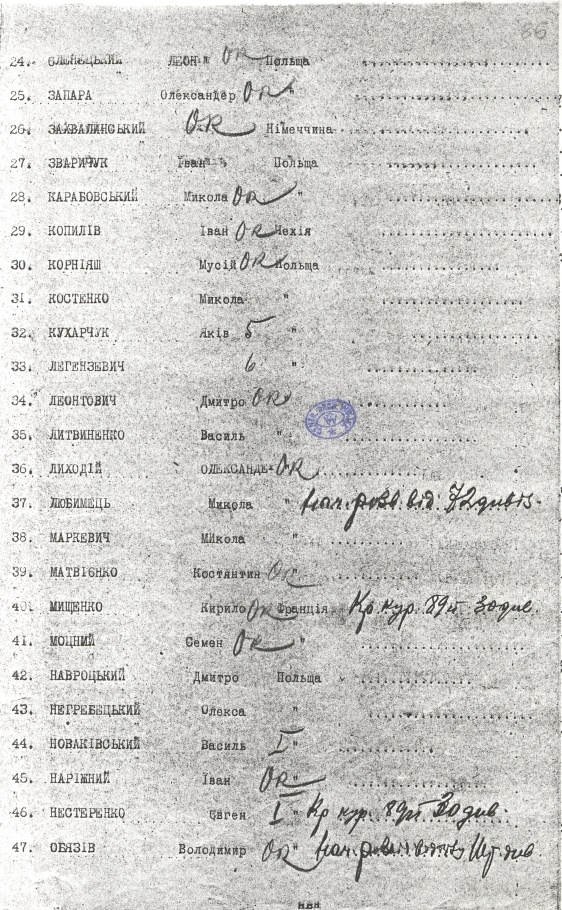 86
24. ЄЛЕНЕЦЬКИЙ ЛЕОН OR Польща
25. ЗАПАРА Олександер OR "
26. ЗАХВАЛИНСЬКИЙ OR Німеччина
27. ЗВАРИЧУК Іван Польща
28. КАРАБОВСЬКИЙ Микола OR "
29. КОПИЛІВ Іван OR Чехія
30. КОРНІЯШ Мусій OR Польща
31. КОСТЕНКО Микола "
32. КУХАРЧУК Яків 5 "
33. ЛЕГЕНЗЕВИЧ 6 "
34. ЛЕОНТОВИЧ Дмитро OR
35. ЛИТВИНЕНКО Василь "
36. ЛИХОДІЙ ОЛЕКСАНДЕР OR
37. ЛЮБИМЕЦЬ Микола "
38. МАРКЕВИЧ Микола "
39. МАТВІЄНКО Костянтин OR "
40. МИЩЕНКО Кирило OR Франція Кр кур. 89п
41. МОЦНИЙ Семен OR "
42. НАВРОЦЬКИЙ Дмитро Польща
43. НЕГРЕБЕЦЬКИЙ Олекса "
44. НОВАКІВСЬКИЙ Василь I "
45. НАРІЖНИЙ Іван OR "
46. НЕСТЕРЕНКО Євген I " Кр кур. 89п
47. ОБЯЗІВ Володимир OR "